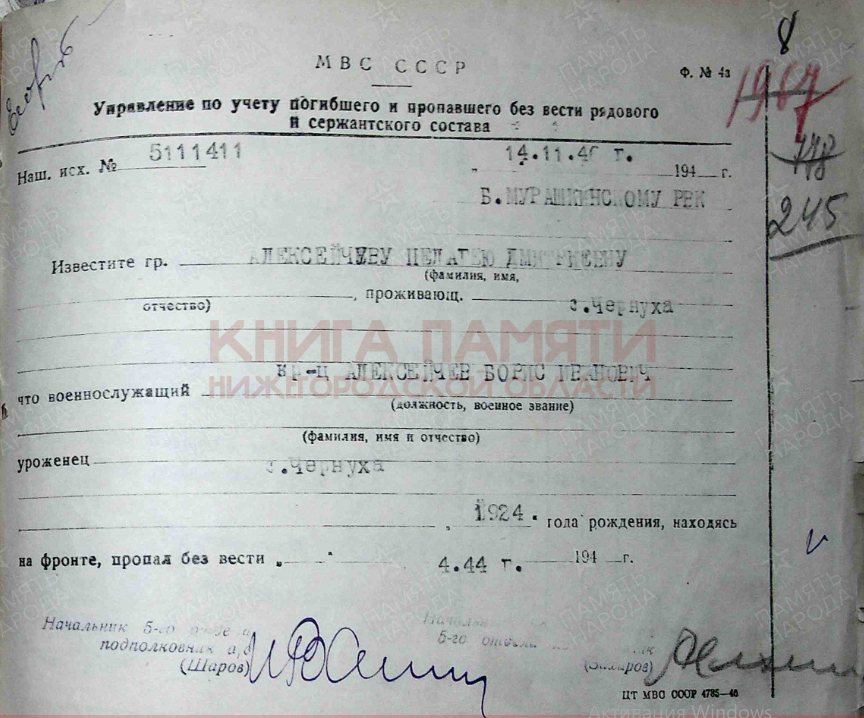 8
МВС СССР
Ф. № 4а
1967
Управление по учету погибшего и пропавшего без вести рядового
и сержантского состава
118
Наш. исх. № 5111411 14.11.46 г. 194 г.
Б.МУРАШКИНСКОМУ РВК
245
Известите гр. АЛЕКСЕЙЧЕВУ ПЕЛАГЕЮ ДМИТРИЕВНУ
(фамилия, имя,
отчество), проживающ. с.Чернуха
КНИГА ПАМЯТИ
НИЖЕГОРОДСКОЙ ОБЛАСТИ
что военнослужащий кр-ц АЛЕКСЕЙЧЕВ БОРИС ИВАНОВИЧ
(должность, военное звание)
(фамилия, имя и отчество)
уроженец с.Чернуха
1924. года рождения, находясь
на фронте, пропал без вести „ " 4.44 г. 194 г.
Начальник 5-го отдела
подполковник а/с
(Шаров)
Начальник
5-го отдела
ЦТ МВС СССР 4785—46
Активация Windows
ПАМЯТЬ
НАРОДА